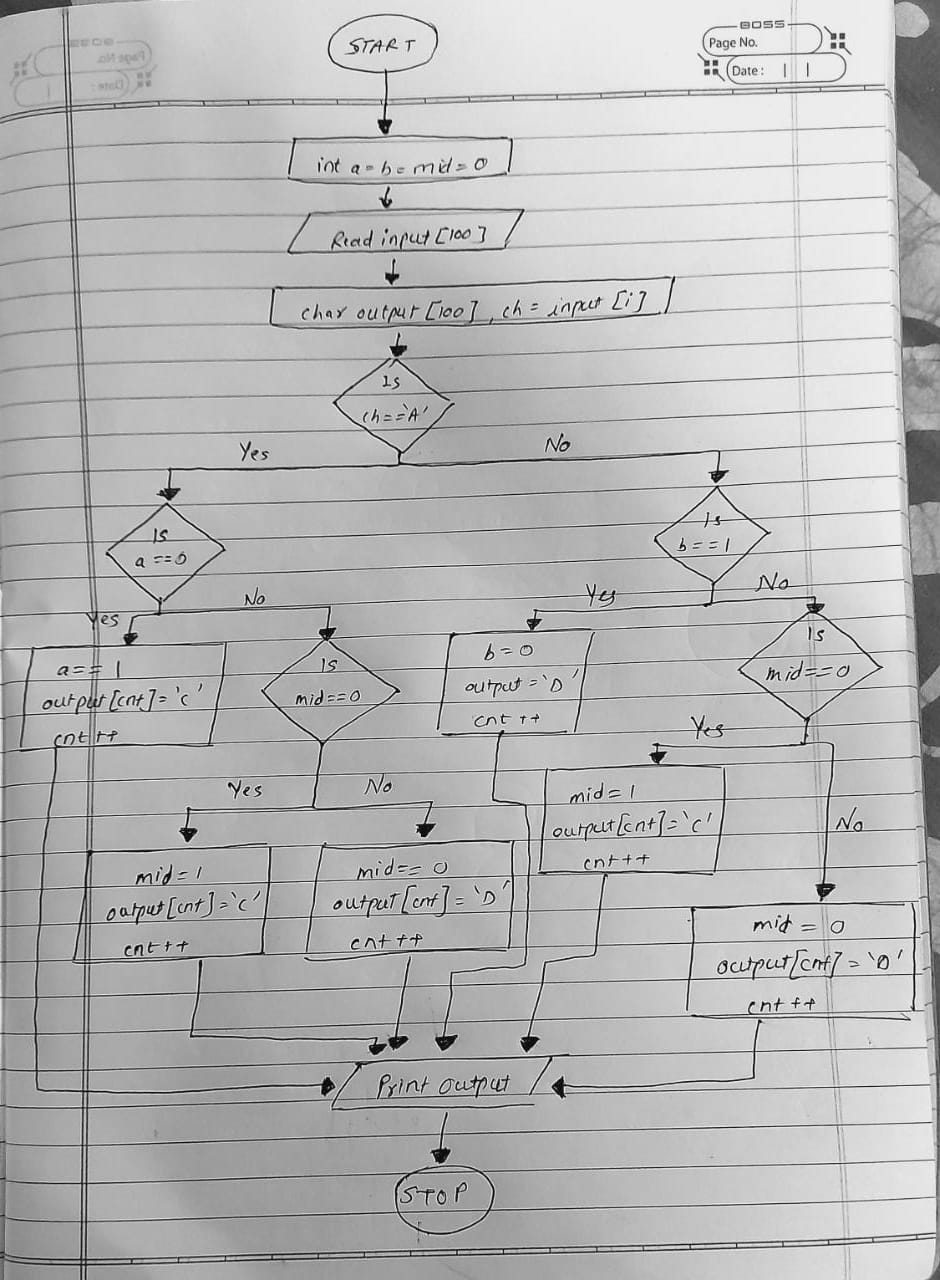 BOSS
Page No.
Date :
START
int a = b = mid = 0
Read input [100]
char output [100], ch = input [i]
Is
ch=='A'
Yes
No
Is
a==0
Is
b==1
Yes
No
Yes
No
a== 1
output [cnt]='C'
cnt ++
Is
mid==0
b=0
output ='D'
cnt ++
Is
mid==0
Yes
No
Yes
No
mid=1
output[cnt]='C'
cnt++
mid=1
output[cnt]='C'
cnt++
mid== 0
output [cnt] = 'D'
cnt ++
mid = 0
output[cnt]='D'
cnt ++
Print output
STOP